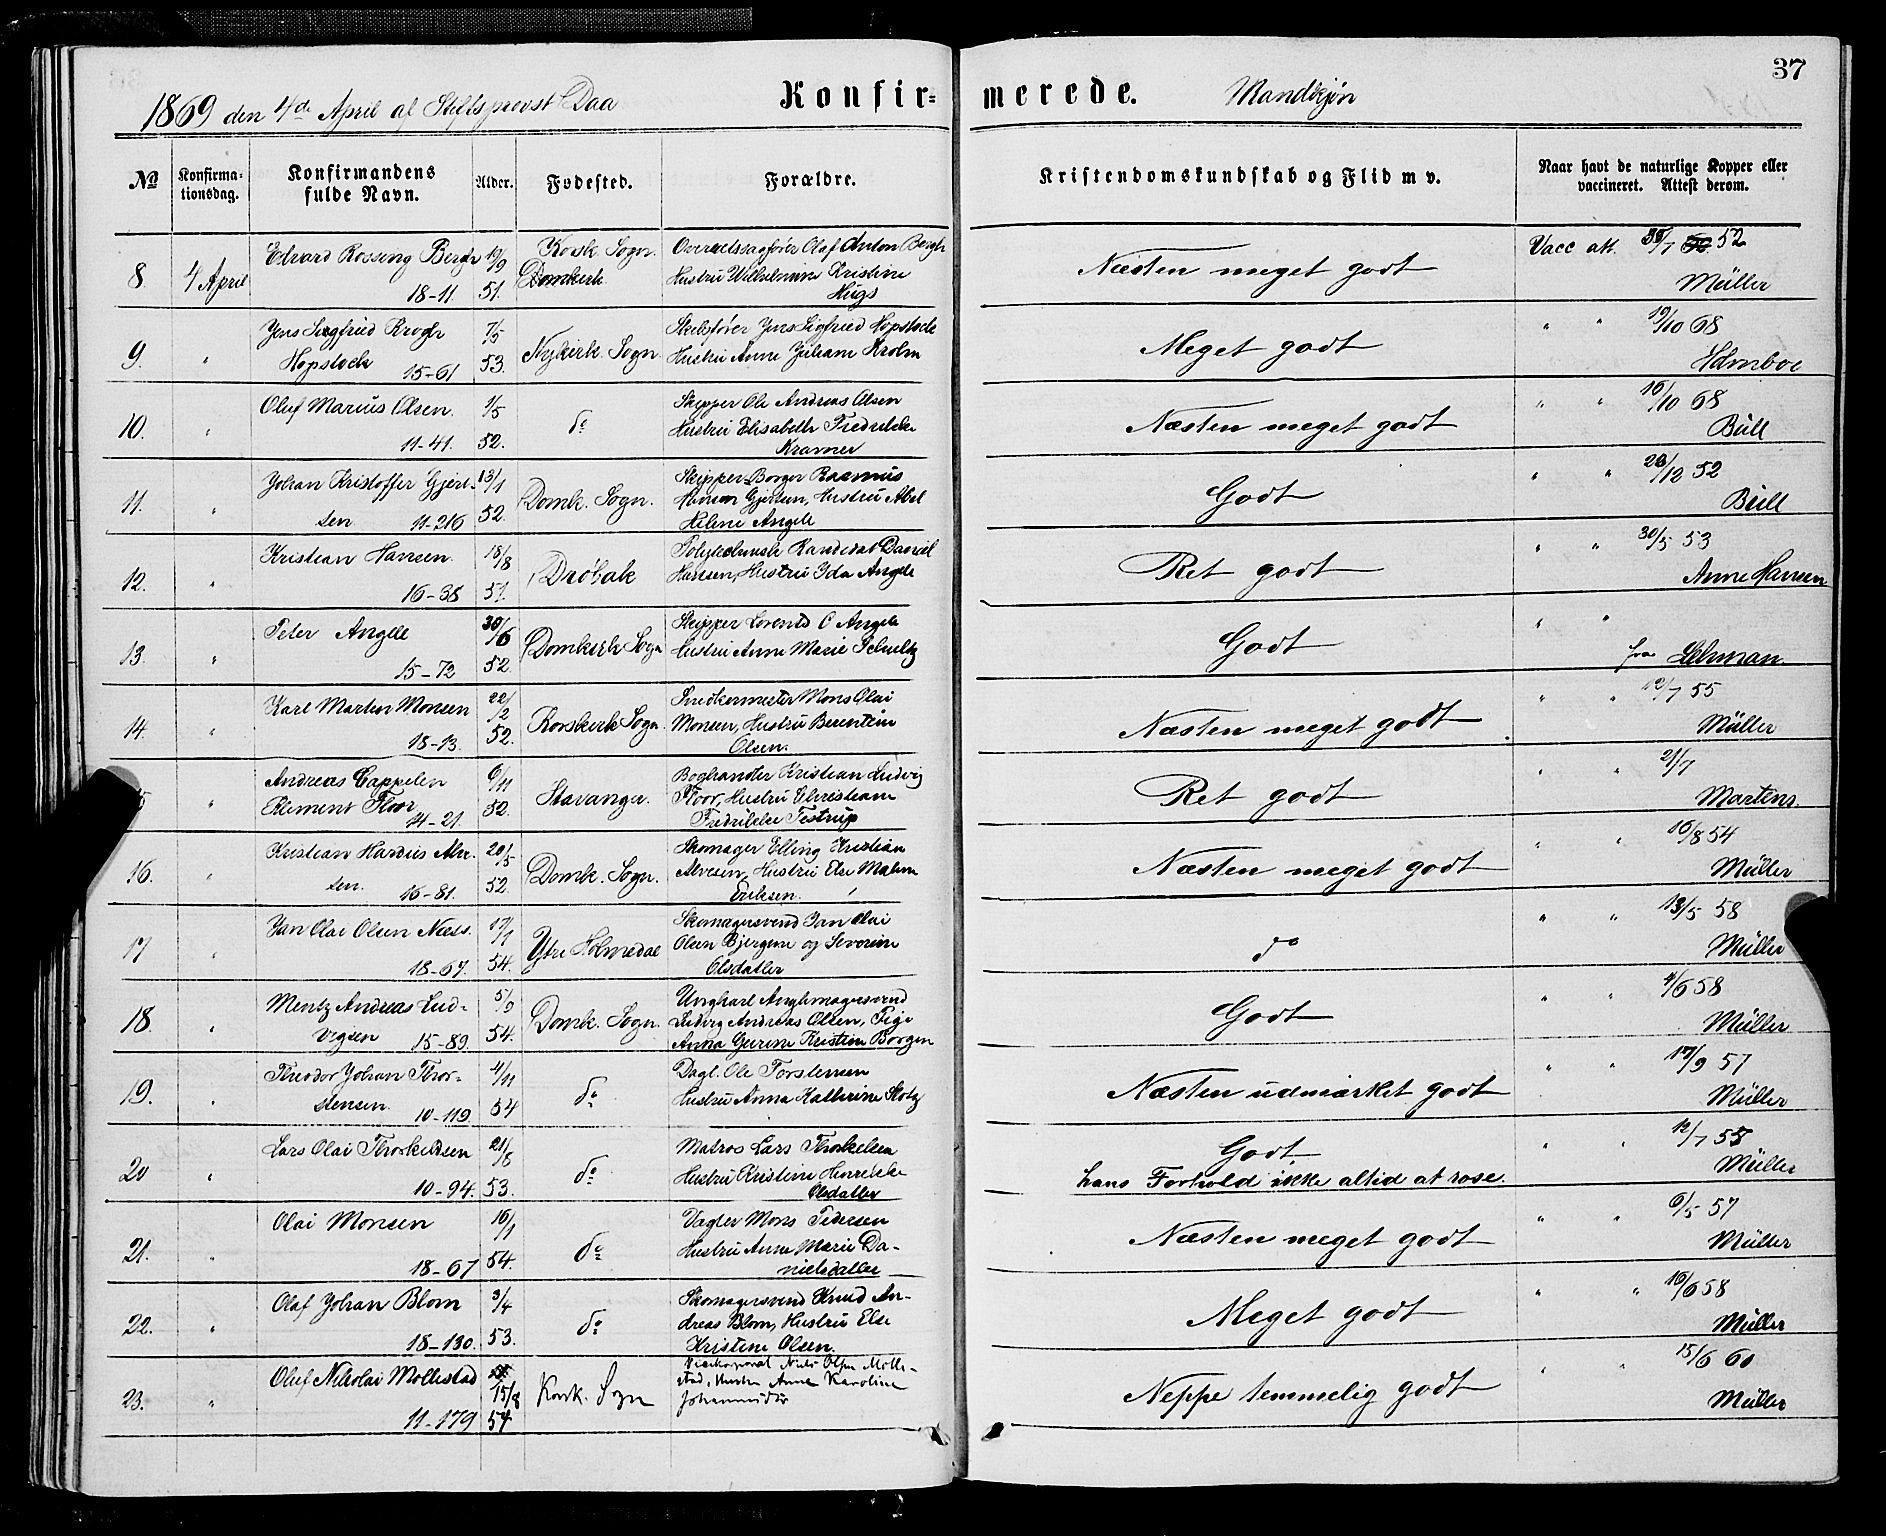 37
1869 den 4de April af Stiftsprovst Daa
Konfir=
merede.
Mandkjøn
No
Konfirma-
tionsdag.
Konfirmandens
fulde Navn.
Alder.
Fødested.
Forældre.
Kristendomskundskab og Flid m v.
Naar havt de naturlige Kopper eller
vaccineret. Attest derom.
8. 4 April
Edvard Rossing Bergh
18-11 51.
Korsk. Sogn.
Domkirk
Overretssagfører Olaf Anton Bergh
Hustru Wilhelmine Kristine
Næsten meget godt
Vacc att. 52
Müller
9. "
Jens Sigfried Krogh 7/5
Hopstock 15-61 53.
Nykirk. Sogn
Skibsfører Jens Sigfried Hopstock
Hustru Anne Juliane Krohn
Meget godt
" " 19/10 68
Holmboe
10. "
Oluf Marius Olsen. 1/5
11-41. 52.
do
Skipper Ole Andreas Olsen
Hustru Elisabeth Fredrikke
Kramer
Næsten meget godt
" " 16/10 68
Bull
11. "
Johan Kristoffer Gjert- 13/1
sen 11-216 52.
Domk. Sogn.
Skipper Borger Rasmus
Hansen Gjertsen, Hustru Abel
Helene Angell
Godt
" " 52
Bull
12. "
Kristian Hansen. 18/8
16-38 51.
Drøbak
Polyteknisk Kandidat Daniel
Hansen, Hustru Ida Angell
Ret godt
" " 30/5 53
Anne Hansen
13. "
Peter Angell 30/6
15-72 52
Domkirk Sogn
Skipper Lorents C Angell
Hustru Anne Marie Schultz
Godt
" "
fra Lehman
14. "
Karl Martin Monsen 22/2
18-13. 52.
Korskirk Sogn.
Snedkermester Mons Olai
Monsen, Hustru Berentine
Olsen.
Næsten meget godt
" " 12/7 55
Müller
"
Andreas Cappelen 6/11
Kliment Floor 14-21. 52.
Stavanger.
Boghandler Kristian Ludvig
Floor, Hustru Christiane
Fredrikke Testrup
Ret godt
" " 21/7
Martens.
16. "
Kristian Hardus Alve- 20/5
sen. 16-81. 52.
Domk. Sogn.
Skomager Elling Kristian
Alvesen, Hustru Else Malene
Eriksen.
Næsten meget godt
" " 16/8 54
Müller
17 "
Jan Olai Olsen Næss. 17/1
18-67. 54.
Ytre Holmedal
Skomagersvend Jan Olai
Olsen Bjergene og Severine
Olsdatter
do
" " 13/5 58
Müller
18. "
Mentz Andreas Lud- 5/9
vigsen 15-89. 54.
Domk. Sogn.
Ungkarl
Ludvig Andreas Olsen, Pige
Anna Gurine Kristine Borgen
Godt
" " 4/6 58
Müller
19. "
Theodor Johan Thor- 4/11
stensen. 10-119. 54
do
Dagl. Ole Torstensen
Hustru Anna Kathrine Stotz
Næsten udmærket godt
" " 17/9 57
Müller
20 "
Lars Olai Thorkildsen 21/8
10-94. 53.
do
Matros Lars Thorkelsen
Hustru Kristine Henrikke
Olsdatter
Godt.
hans Forhold ikke altid at rose.
" " 12/7 55
Müller
21. "
Olai Monsen 16/1
18-67 54.
do
Vagter Mons Pedersen
Hustru Anne Marie Da-
nielsdatter
Næsten meget godt
" " 6/5 57
Müller
22. "
Olaf Johan Blom 3/4
18-130. 53.
do
Skomagersvend Knud An-
dreas Blom, Hustru Else
Kristine Olsen.
Meget godt
" " 16/6 58
Müller
23. "
Oluf Nikolai Mollestad 15/8
11-179 54
Korsk. Sogn
Vicekorporal Niels Olsen Molle-
stad, Hustru Anne Karoline
Neppe temmelig godt
" " 15/6 60
Müller